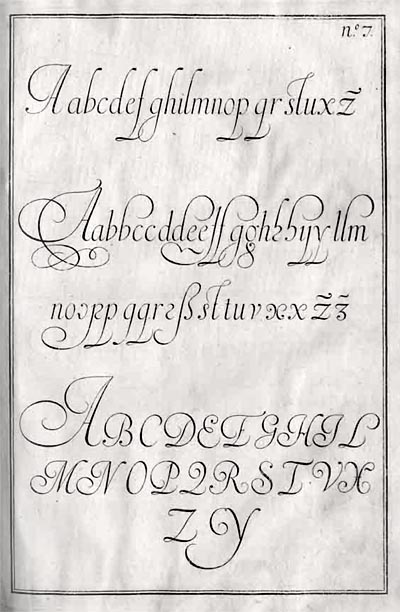 n.º 7.
A abcdefghilmnopqrsstuxz̃
Aabbccddeeffgghhhijyllm
noɔppp qqrrßsttuvxxz̃z̃
ABCDEFGHIL
MNOPQRSTVX
ZY